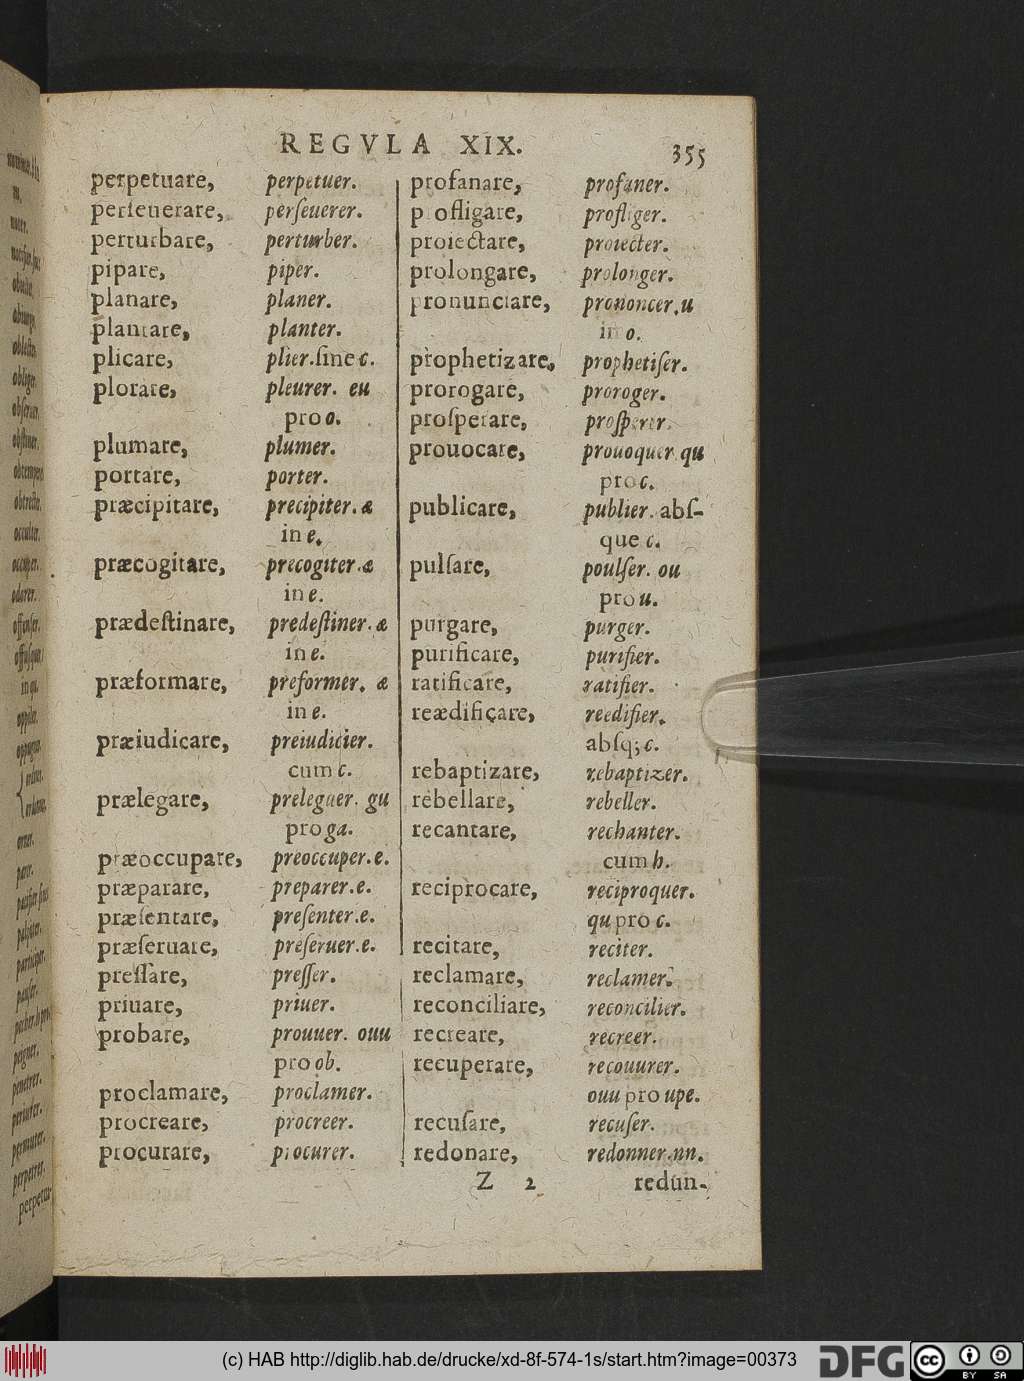 REGVLA XIX.
355
perpetuare, perpetuer.
perſeuerare, perſeuerer.
perturbare, perturber.
pipare, piper.
planare, planer.
plantare, planter.
plicare, plier. ſine c.
plorare, pleurer. eu
pro o.
plumare, plumer.
portare, porter.
præcipitare, precipiter. æ
in e.
præcogitare, precogiter. æ
in e.
prædeſtinare, predeſtiner. æ
in e.
præformare, preformer. æ
in e.
præiudicare, preiudicier.
cum c.
prælegare, preleguer. gu
pro ga.
præoccupare, preoccuper. e.
præparare, preparer. e.
præſentare, preſenter. e.
præſeruare, preſeruer. e.
preſſare, preſſer.
priuare, priuer.
probare, prouuer. ouu
pro ob.
proclamare, proclamer.
procreare, procreer.
procurare, procurer.
profanare, profaner.
profligare, profliger.
proiectare, proiecter.
prolongare, prolonger.
pronunciare, prononcer. u
in o.
prophetizare, prophetiſer.
prorogare, proroger.
proſperare, proſperer.
prouocare, prouoquer. qu
pro c.
publicare, publier. abſ-
que c.
pulſare, poulſer. ou
pro u.
purgare, purger.
purificare, purifier.
ratificare, ratifier.
reædificare, reedifier.
abſq; c.
rebaptizare, rebaptizer.
rebellare, rebeller.
recantare, rechanter.
cum h.
reciprocare, reciproquer.
qu pro c.
recitare, reciter.
reclamare, reclamer.
reconciliare, reconcilier.
recreare, recreer.
recuperare, recouurer.
ouu pro upe.
recuſare, recuſer.
redonare, redonner. nn.
Z 2
redun-
(c) HAB http://diglib.hab.de/drucke/xd-8f-574-1s/start.htm?image=00373
DFG
cc
BY SA